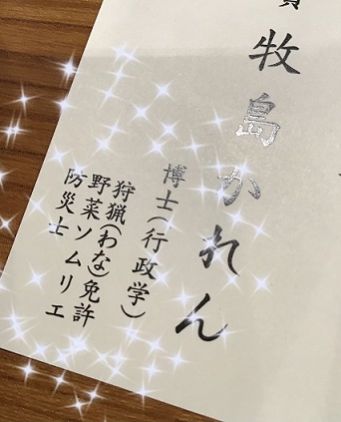 牧島かれん
博士(行政学)
狩猟(わな)免許
野菜ソムリエ
防災士